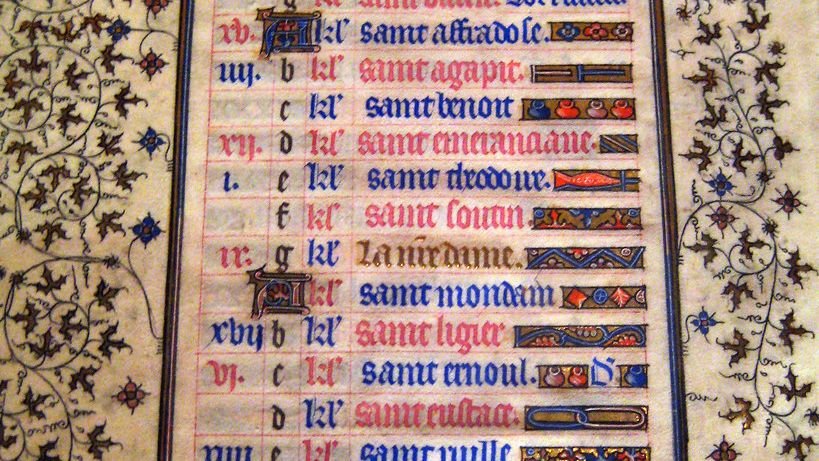 xv. A kl' saint affradose.
iiij. b kl' saint agapit.
c kl' saint benoit
xij. d kl' saint emeranciane.
i. e kl' saint theodoue.
f kl' saint soutin.
ix. g kl' La nr̃e dame.
A kl' saint mondain
xvij b kl' saint ligier
vj. c kl' saint ernoul.
d kl' saint eustace.
e kl' saint